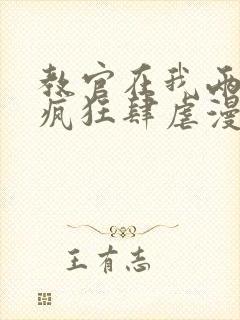 教官在我两
疯狂肆虐漫
王有志